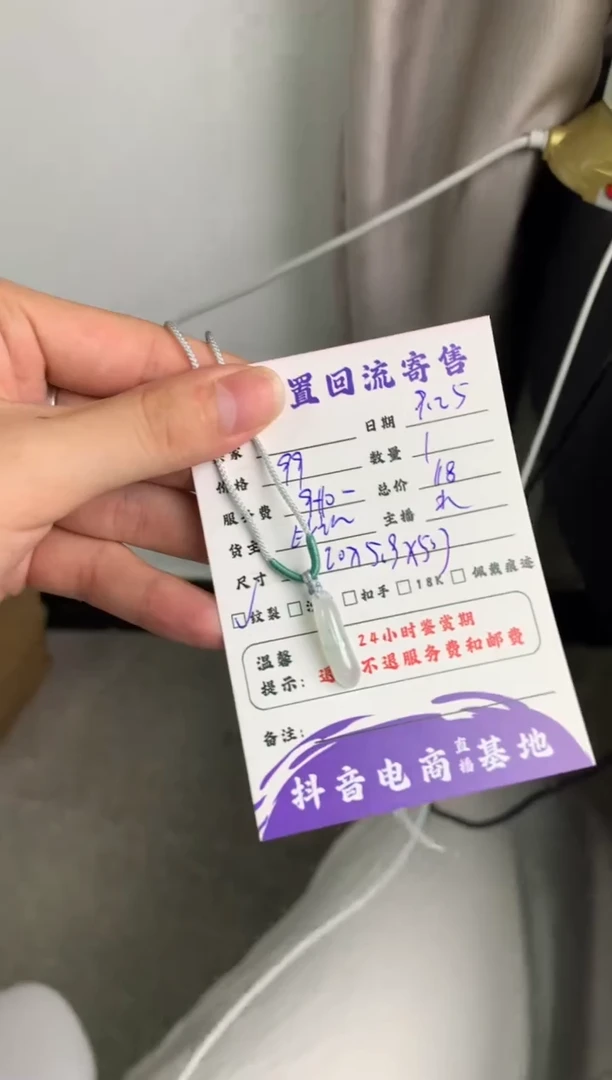 置回流寄售
日期 3.25
家
价格 99 数量 1
服务费 总价 118
货主 主播
尺寸 20X5.9X5.7
☑纹裂 □ □扣手 □18K □佩戴痕迹
温馨 24小时鉴赏期
提示: 退 不退服务费和邮费
备注:
抖音电商直播基地